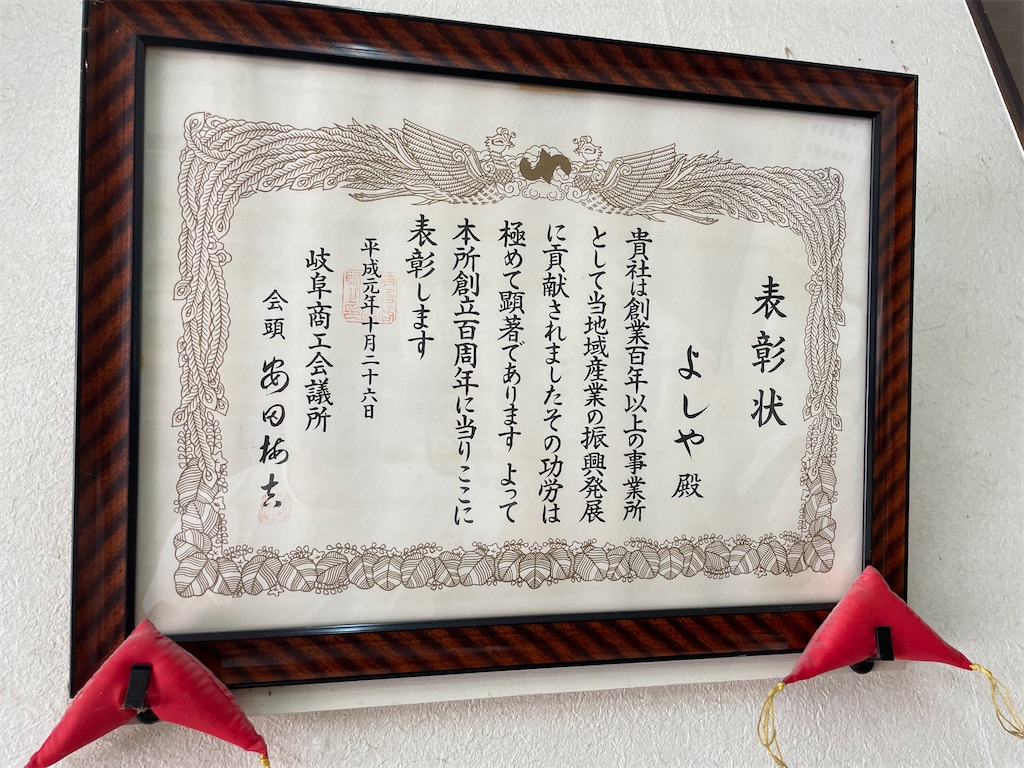 表彰状
よしや殿
貴社は創業百年以上の事業所
として当地域産業の振興発展
に貢献されましたその功労は
極めて顕著であります よって
本所創立百周年に当りここに
表彰します
平成元年十月二十六日
岐阜商工会議所
会頭 安田梅吉